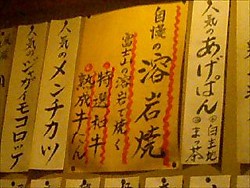 人気のあげぱん
白玉地
きな
自慢の溶岩焼
富士山の溶岩で焼く
特選和牛
熟成牛たん
人気のメンチカツ
人気のジャガイモコロッケ